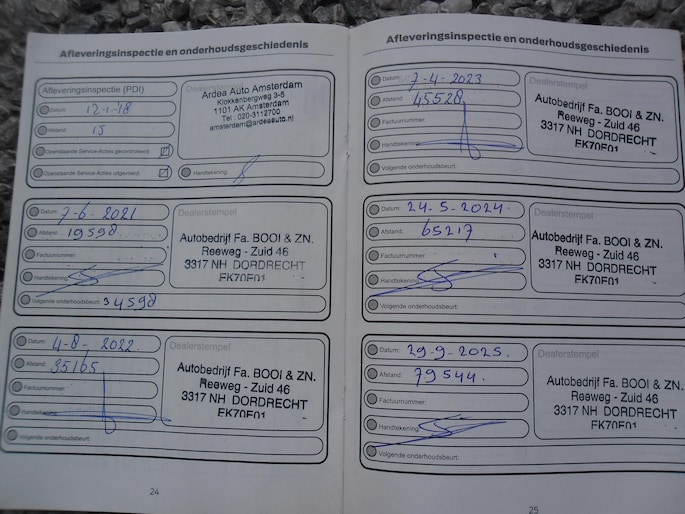 Afleveringsinspectie en onderhoudsgeschiedenis
Afleveringsinspectie (PDI)
Datum: 12-1-18
Afstand: 15
Openstaande Service-Acties gecontroleerd:
Openstaande Service-Acties uitgevoerd:
Ardea Auto Amsterdam
Klokkenbergweg 3-5
1101 AK Amsterdam
Tel : 020-3112700
amsterdam@ardeaauto.nl
Handtekening:
Datum: 7-6-2021
Afstand: 19598
Factuurnummer:
Handtekening:
Volgende onderhoudsbeurt: 34598
Dealerstempel
Autobedrijf Fa. BOOI & ZN.
Reeweg - Zuid 46
3317 NH DORDRECHT
EK70E01
Datum: 4-8-2022.
Afstand: 35165
Factuurnummer:
Handtekening:
Volgende onderhoudsbeurt:
Dealerstempel
Autobedrijf Fa. BOOI & ZN.
Reeweg - Zuid 46
3317 NH DORDRECHT
EK70E01
24
Afleveringsinspectie en onderhoudsgeschiedenis
Datum: 7-4-2023
Afstand: 45528
Factuurnummer:
Handtekening:
Volgende onderhoudsbeurt:
Autobedrijf Fa. BOOI & ZN.
Reeweg - Zuid 46
3317 NH DORDRECHT
EK70E01
Datum: 24-5-2024.
Afstand: 65217
Factuurnummer:
Handtekening:
Volgende onderhoudsbeurt:
Dealerstempel
Autobedrijf Fa. BOOI & ZN.
Reeweg - Zuid 46
3317 NH DORDRECHT
EK70E01
Datum: 29-9-2025.
Afstand: 79544.
Factuurnummer:
Handtekening:
Volgende onderhoudsbeurt:
Dealerstempel
Autobedrijf Fa. BOOI & ZN.
Reeweg - Zuid 46
3317 NH DORDRECHT
EK70E01
25